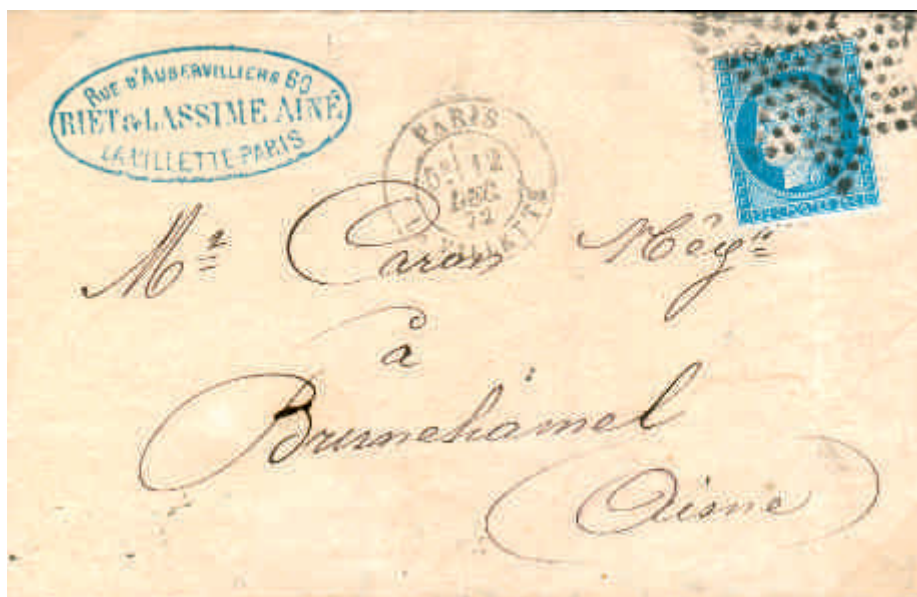 RUE D'AUBERVILLIERS 60
RIET & LASSIME AINÉ
LA VILLETTE-PARIS
PARIS
5E/ 12
DEC
72
LA VILLETTE
Mr Caron Nég
à
Brunehamel
(Aisne)